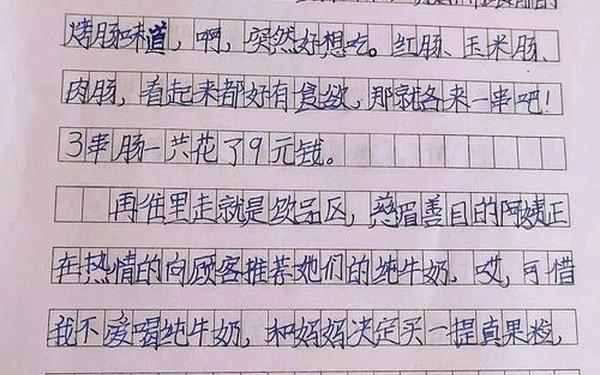 烤肠味道，啊，突然好想吃。红肠、玉米肠、
肉肠，看起来都好有食欲，那就各来一串吧！
3串肠一共花了9元钱。
再往里走就是饮品区，慈眉善目的阿姨正
在热情的向顾客推荐她们的纯牛奶，哎，可惜
我不爱喝纯牛奶，和妈妈决定买一提真果粒，